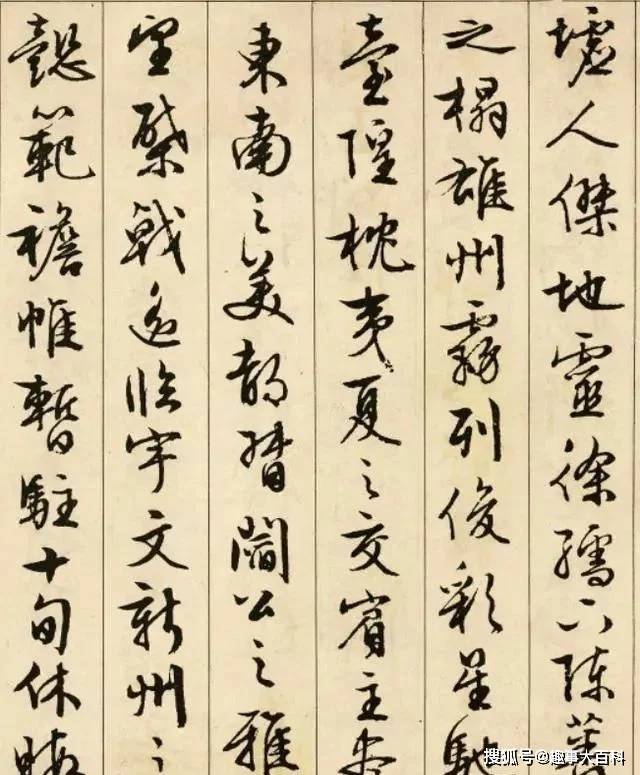 墟人傑地靈徐孺下陳蕃
之榻雄州霧列俊彩星馳
臺隍枕夷夏之交賓主盡
東南之美都督閻公之雅
望棨戟遥臨宇文新州之
懿範襜帷暫駐十旬休暇
搜狐号@趣事大百科